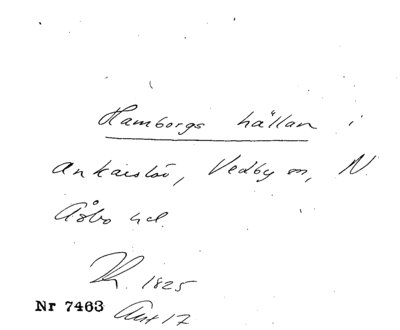 Hamborgs hällan i
Ankarslöv, Vedby sn, N.
Åsbo hd.
R. 1825
Nr 7463 Avt 17